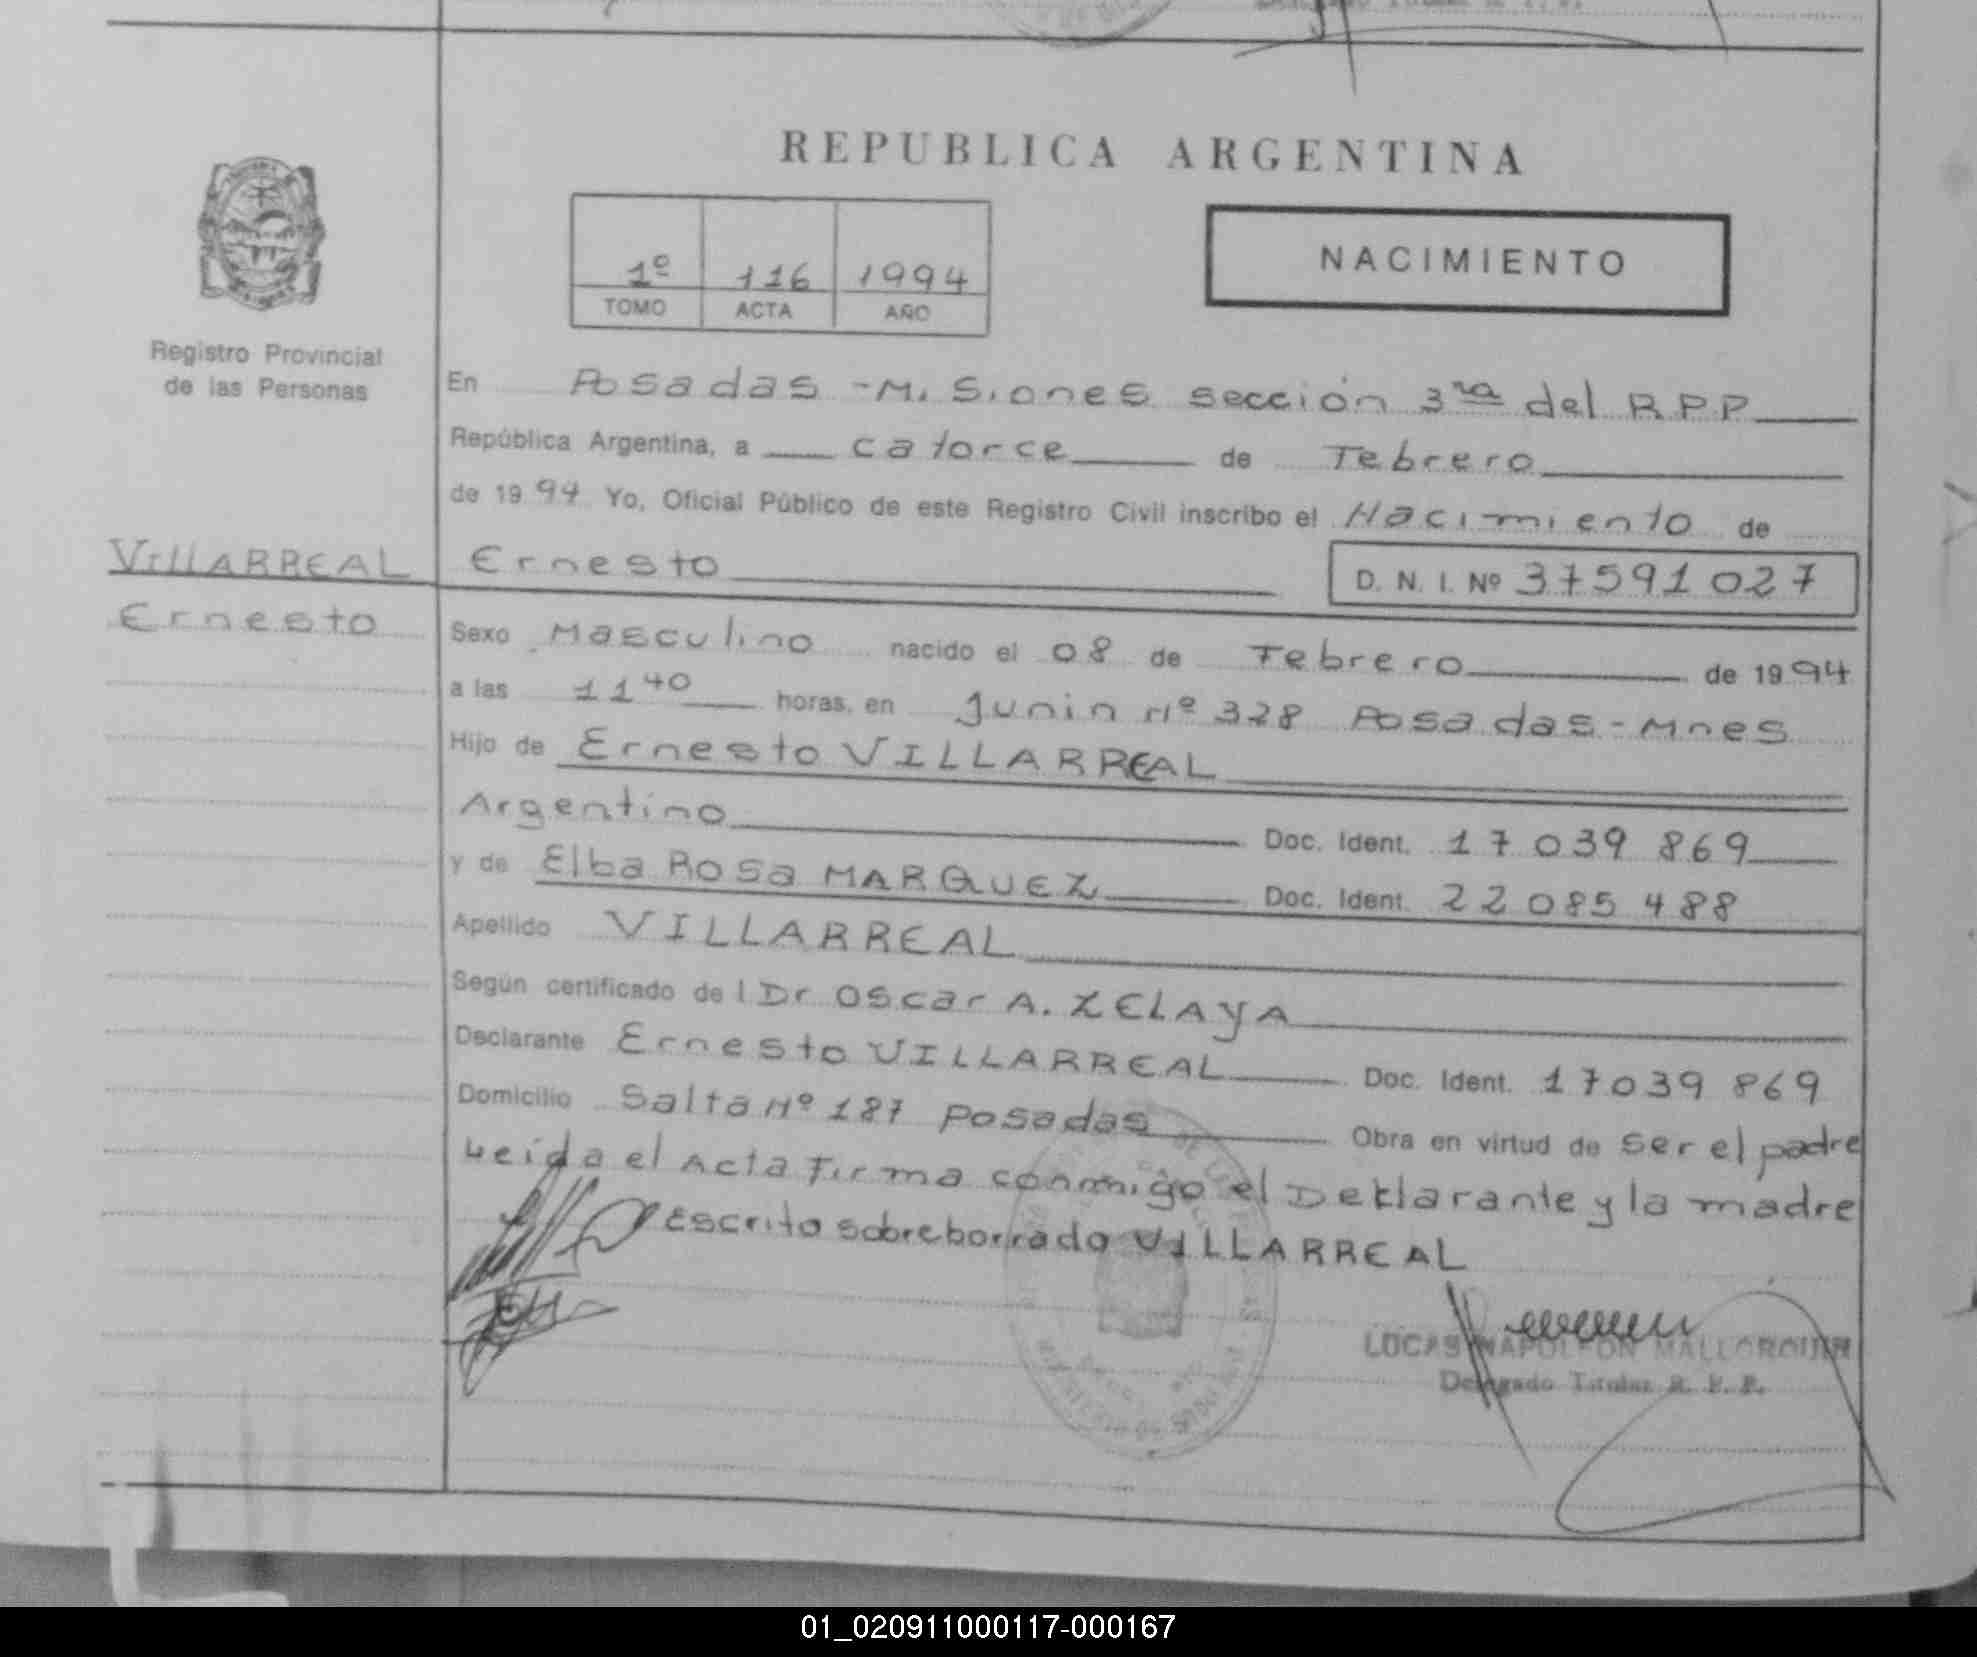 REPUBLICA ARGENTINA
1º 116 1994
TOMO ACTA AÑO
NACIMIENTO
Registro Provincial
de las Personas
En Posadas - Misiones sección 3ra del R.P.P
República Argentina, a catorce de Febrero
de 1994 Yo, Oficial Público de este Registro Civil inscribo el Nacimiento de
VillARREAL Ernesto D. N. I. Nº 37591027
Ernesto
Sexo Masculino nacido el 08 de Febrero de 1994
a las 11 40 horas, en Junin Nº 328 Posadas - Mnes
Hijo de Ernesto VILLARREAL
Argentino Doc. Ident. 17 039 869
y de Elba Rosa MARQUEZ Doc. Ident. 22 085 488
Apellido VILLARREAL
Según certificado de l Dr Oscar A. ZELAYA
Declarante Ernesto VILLARREAL Doc. Ident. 17039 869
Domicilio Salta Nº 187 Posadas Obra en virtud de ser el padre
Leída el Acta Firma conmigo el Deklarante y la madre
Escrito sobreborrado VILLARREAL
LUCAS NAPOLEON MALLORQUIN
Delegado Titular R. P. P.
01_020911000117-000167